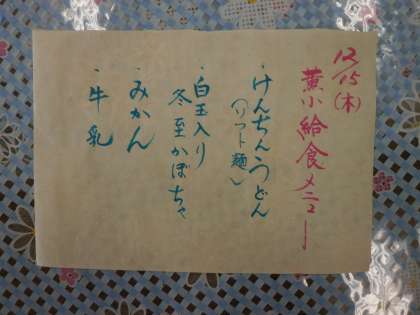 12/15(木)
薫小給食メニュー
・けんちんうどん
(ソフト麺)
・白玉入り
冬至かぼちゃ
・みかん
・牛乳